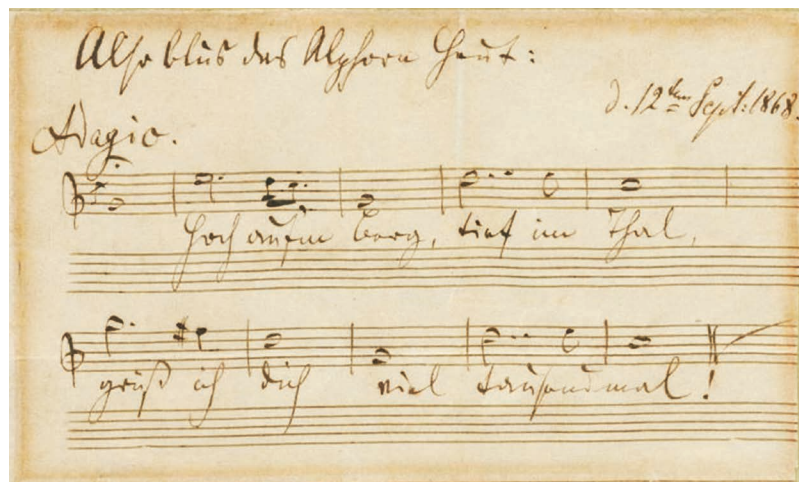 Also blus das Alphorn heut:
d. 12ten Sept. 1868.
Adagio.
Hoch aufm Berg, tief im Thal,
grüß ich dich viel tausendmal!